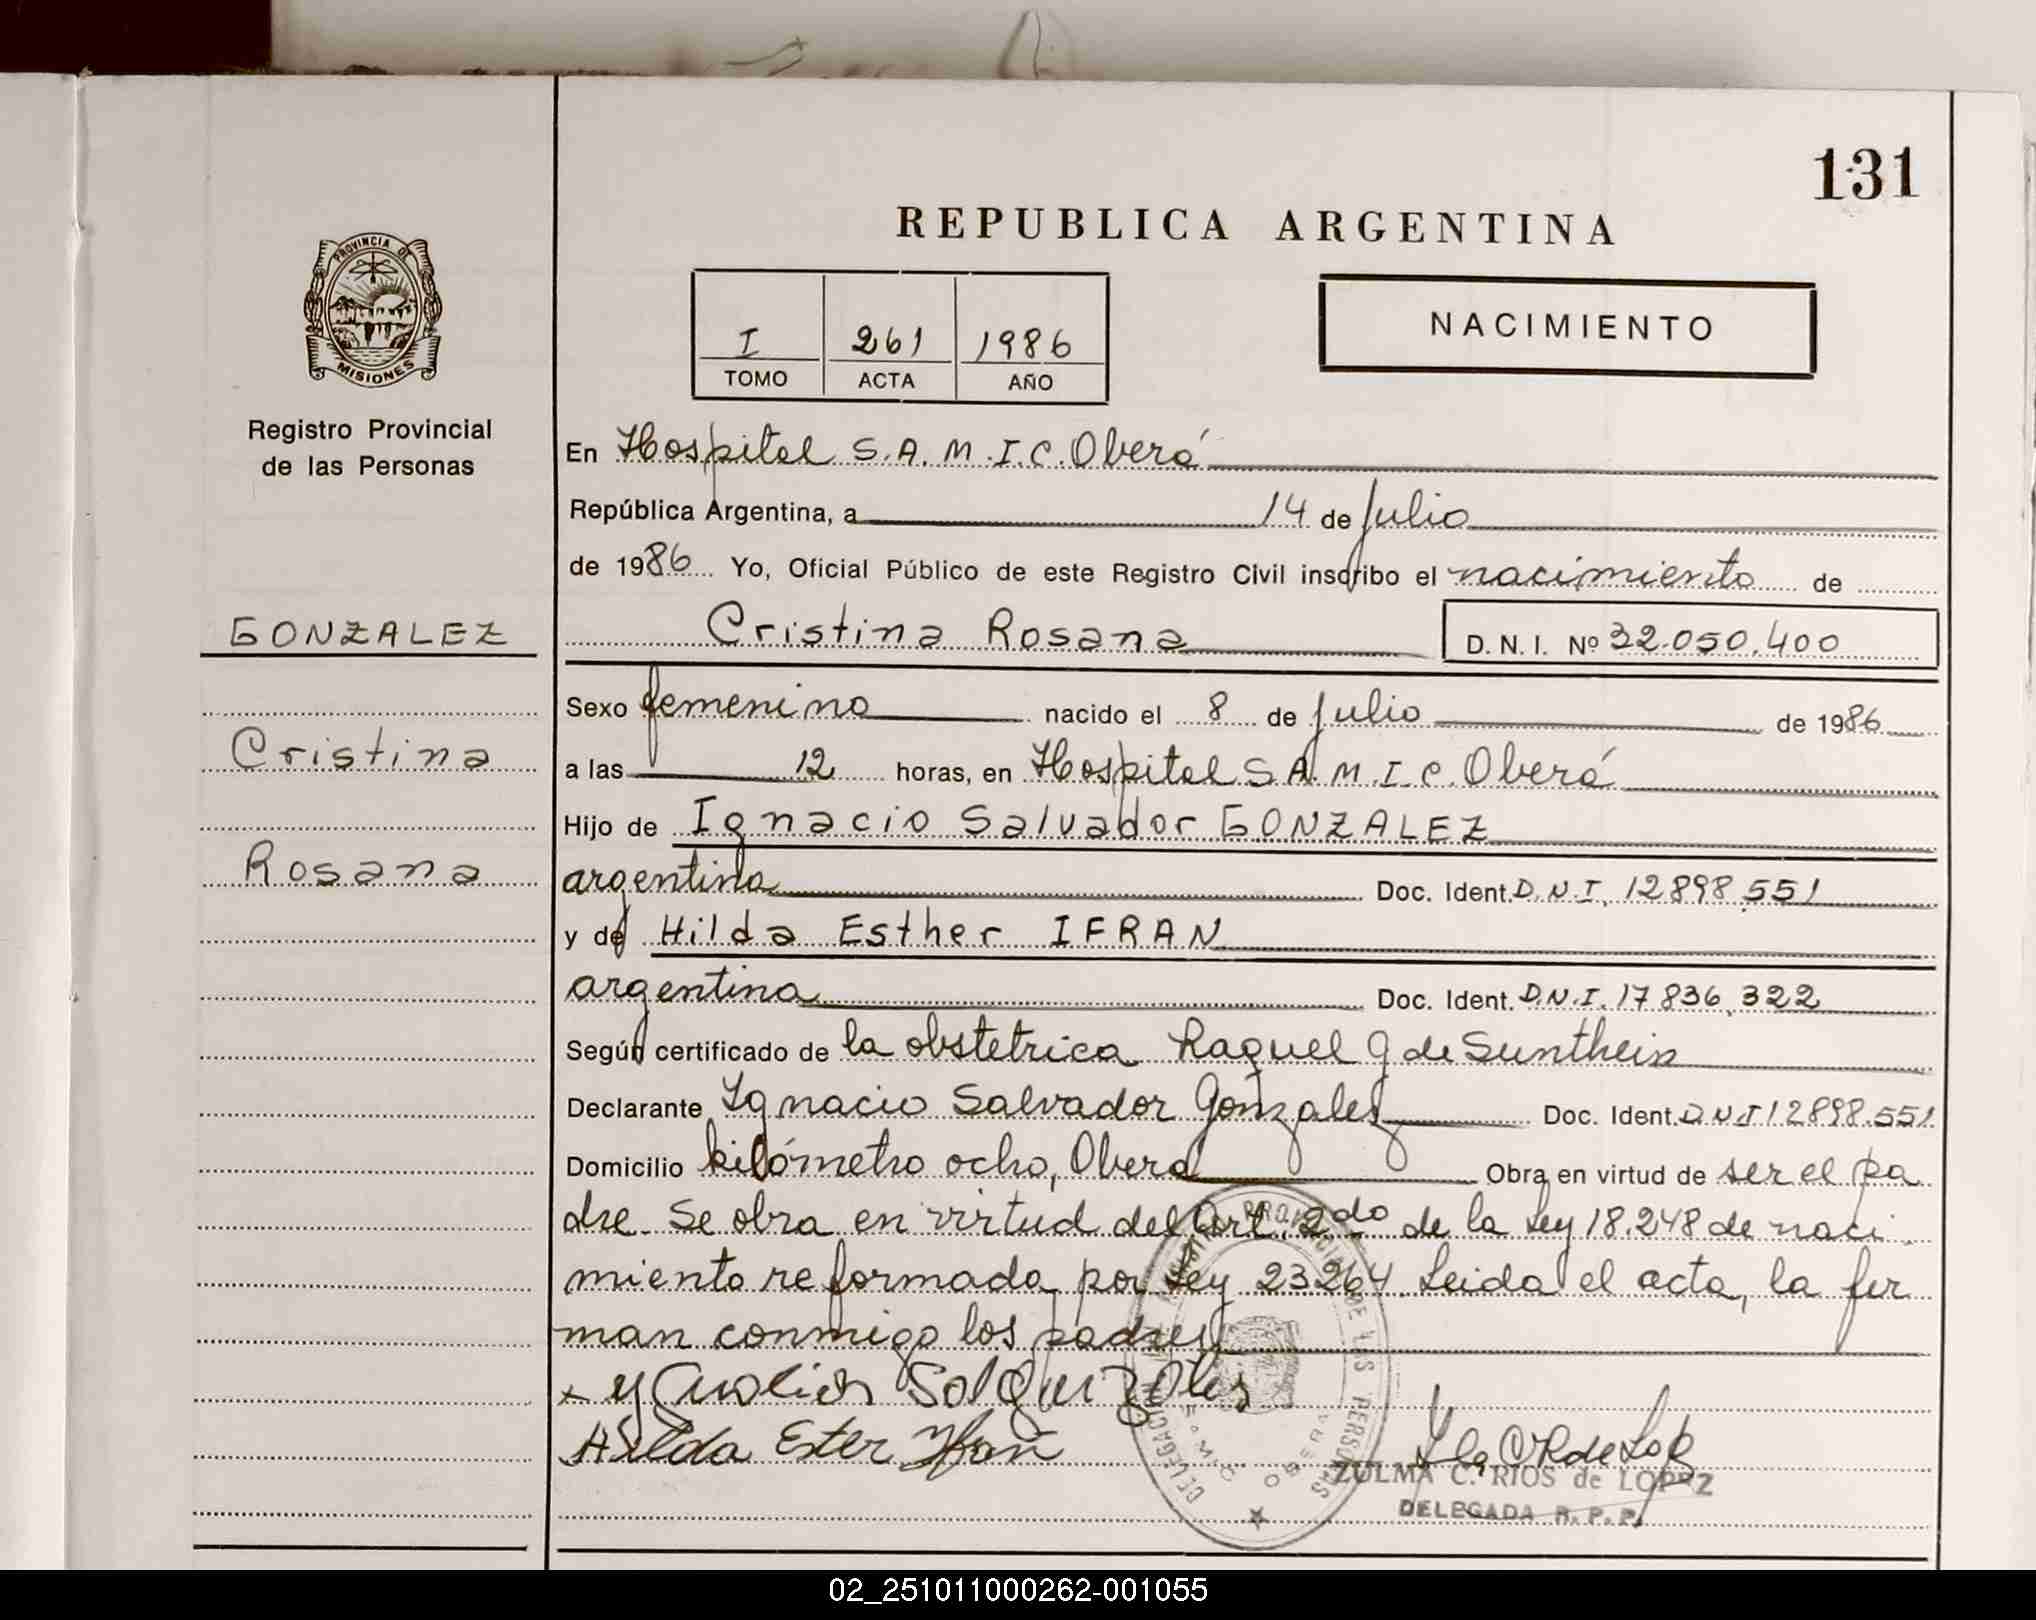 131
REPUBLICA ARGENTINA
PROVINCIA DE
MISIONES
Registro Provincial
de las Personas
I 261 1986
TOMO ACTA AÑO
NACIMIENTO
En Hospital S.A.M.I.C. Oberá
República Argentina, a 14 de julio
de 1986 Yo, Oficial Público de este Registro Civil inscribo el nacimiento de
GONZALEZ
Cristina Rosana D. N. I. Nº 32.050.400
Sexo femenino nacido el 8 de julio de 1986
Cristina
a las 12 horas, en Hospital S.A.M.I.C. Oberá
Hijo de Ignacio Salvador GONZALEZ
Rosana
argentina Doc. Ident. D.N.I. 12.898.551
y de Hilda Esther IFRAN
argentina Doc. Ident. D.N.I. 17.836.322
Según certificado de la obstetrica Raquel G de
Declarante Ignacio Salvador Gonzalez Doc. Ident. D.N.I 12898.551
Domicilio kilómetro ocho, Oberá Obra en virtud de ser el pa
dre. Se obra en virtud del Art. 2do de la Ley 18.248 de naci
miento reformada por Ley 23264. Leida el acta, la fir
man conmigo los padres
Hilda Ester Ifran
ZULMA C. RIOS de LOPEZ
DELEGADA R. P. P.
02_251011000262-001055